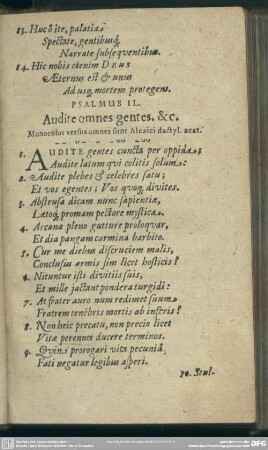 13. Huc ô ite, palatia
Spectate, gentibusq́
Narrate subsequentibus.
14. Hic nobis etenim DEUS
Æternus est & unus
Ad usq; mortem protegens.
PSALMUS II.
Audite omnes gentes, &c.
Monocolos versus omnes sunt Alcaici dactyl. acat.
1. AUDITE gentes cuncta per oppida;
Audite latum qui colitis solum:
2. Audite plebes & celebres satu;
Et vos egentes; Vos quoq, divites.
3. Abstrusa dicam nunc sapientiæ,
Latoq, promam pectore mystica.
4. Arcana pleno gutture proloquar,
Et dia pangam carmina barbito.
5. Cur me diebus discruciem malis,
Conclusus armis sim licet hosticis?
6. Nituntur isti divitiis suis,
Et mille jactant pondera turgidi:
7. At frater auro num redimet suum
Fratrem tenebris mortis ab inferis?
8. Non heic precatu, non precio licet
Vitæ perennes ducere terminos.
9. Quin prorogari vita pecuniâ,
Fati negatur legibus asperi.
10. Stul-